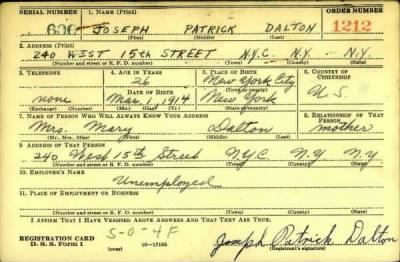 SERIAL NUMBER 1. NAME (Print) ORDER NUMBER
JOSEPH PATRICK DALTON 1212
(First) (Middle) (Last)
2. ADDRESS (Print)
240 WEST 15th STREET N.Y.C. N.Y. N.Y.
(Number and street or R. F. D. number) (Town) (County) (State)
3. TELEPHONE 4. AGE IN YEARS 5. PLACE OF BIRTH 6. COUNTRY OF CITIZENSHIP
26 New York City
DATE OF BIRTH (Town or county)
none Mar. 1914 New York U.S.
(Exchange) (Number) (Mo.) (Day) (Yr.) (State or country)
7. NAME OF PERSON WHO WILL ALWAYS KNOW YOUR ADDRESS 8. RELATIONSHIP OF THAT PERSON
Mrs. Mary Dalton mother
(Mr., Mrs., Miss) (First) (Middle) (Last)
9. ADDRESS OF THAT PERSON
240 West 15th Street NYC NY NY
(Number and street or R. F. D. number) (Town) (County) (State)
10. EMPLOYER'S NAME
Unemployed
11. PLACE OF EMPLOYMENT OR BUSINESS
(Number and street or R. F. D. number) (Town) (County) (State)
I AFFIRM THAT I HAVE VERIFIED ABOVE ANSWERS AND THAT THEY ARE TRUE.
S-0-4F
REGISTRATION CARD
D. S. S. Form 1 (over) 16—17105
Joseph Patrick Dalton
(Registrant's signature)